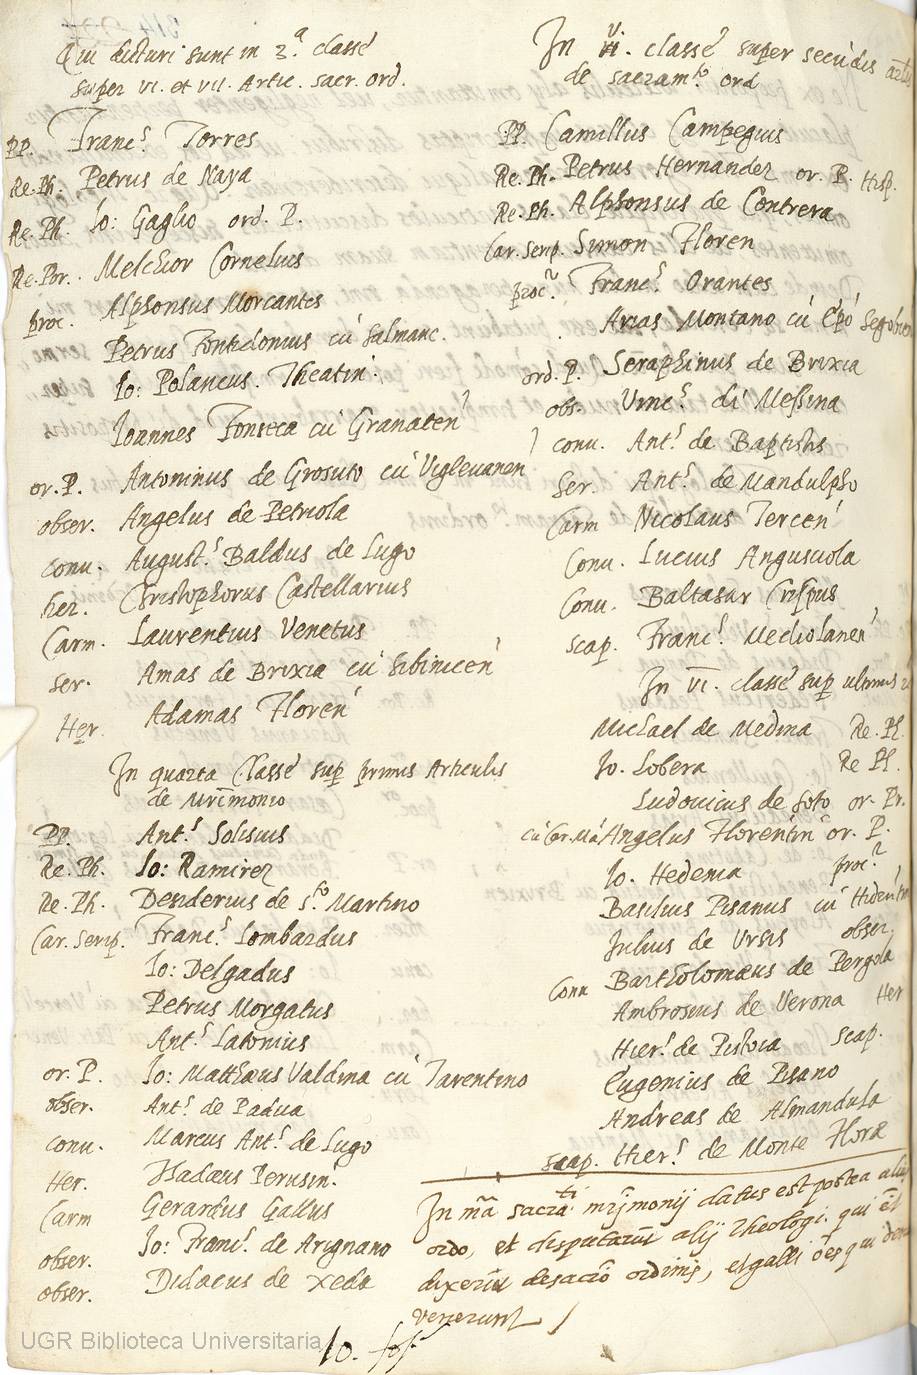 Qui dicturi sunt in 3.ª classé
super VI. et VII. Artic. sacr. ord.
PP. Franc.s Torres
Re. Ph. Petrus de Naya
Re. Ph. Io: Gaglio ord. P.
Re. Por. Melchior Cornelius
proc. Alphonsus Morcantes
Petrus Fontidonius cú Salmanc.
Io: Polancus. Theatin.
Ioannes Fonseca cú Granaten
or. P. Antoninus de Grosuto cú Vigleuanen
obser. Angelus de Petriola
conu. August.s Baldus de Lugo
her. Christophorus Castellarius
Carm. Laurentius Venetus
ser. Amas de Brixia cú Sibinicen
Her. Adamas Floren
In quarta Classé sup primis Articulis
de mrimonio
PP. Ant.s Solisius
Re. Ph. Io: Ramirez
Re. Ph. Desiderius de S.to Martino
Car. Serip. Franc.s Lombardus
Io: Delgadus
Petrus Morgatus
Ant.s Latonius
or. P. Io: Matthæus Valdina cú Tarentino
obser. Ant.s de Padua
conu. Marcus Ant.s de Lugo
Her. Thadæus Perusin.
Carm Gerardus Gallus
obser. Io: Franc.s de Arignano
obser. Didacus de Xeda
In VI. classé super secúdis
de sacram.to ord
PP. Camillus Campegius
Re. Ph. Petrus Hernandez or. P. Hisp.
Re. Ph. Alphonsus de Contrera
Car. Serip. Simon Floren
proc.r Franc.s Orantes
Arias Montano cú Epó
ord. P. Seraphinus de Brixia
obs. Vinc.s di Messina
conu. Ant.s de Baptistis
Ser. Ant.s de Mandulpho
Carm Nicolaus Tercen
Conu. Lucius Anguscuola
Conu. Baltasar Crispus
scap. Franc.s Mediolanen
In VI. classé sup ultimis
Michael de Medina Re. Ph.
Io. Lobera Re Ph.
Ludouicus de Soto or. Pr.
cú Cor. Má Angelus Florentin or. P.
Io. Hedema proc.r
Basilius Pisanus cú
Julius de Ursis obser.
Conu Bartholomæus de Pergola
Ambrosius de Verona Her
Hier.s de Pistoia scap.
Eugenius de Pisano
Andreas de Almandula
scap. Hier.s de Monte Floræ
In mã sacrati mrjmonij datus est postea
ordo, et disputarút alij theologi. qui et
dixerút de sacrõ ordinis, et galli oẽs qui
venerunt
UGR Biblioteca Universitaria